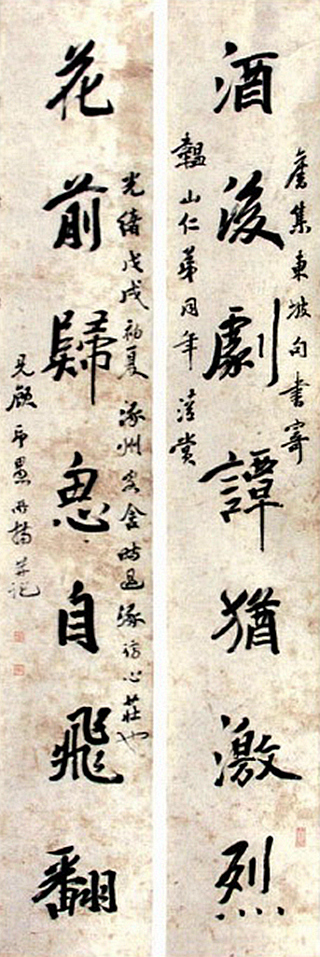 酒後劇譚猶激烈
舊集東坡句書寄
韞山仁弟同年 清賞
花前歸思自飛翻
光緒戊戌初夏 涿州客舍時過 訪心莊也
見顧 再